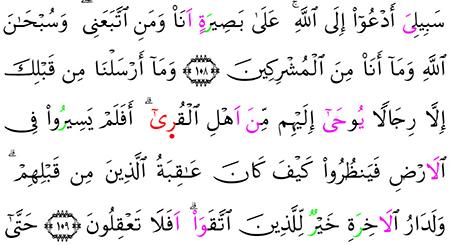 سَبِيلِىَ أَدْعُوٓا۟ إِلَى ٱللَّهِ ۚ عَلَىٰ بَصِيرَةٍ اَنَا۠ وَمَنِ ٱتَّبَعَنِى ۖ وَسُبْحَـٰنَ
ٱللَّهِ وَمَآ أَنَا۠ مِنَ ٱلْمُشْرِكِينَ ١٠٨ وَمَآ أَرْسَلْنَا مِن قَبْلِكَ
إِلَّا رِجَالًا يُوحَىٰٓ إِلَيْهِم مِّنَ اَهْلِ ٱلْقُرِىٰٓ ۗ أَفَلَمْ يَسِيرُوا۟ فِى
ٱلَارْضِ فَيَنظُرُوا۟ كَيْفَ كَانَ عَـٰقِبَةُ ٱلَّذِينَ مِن قَبْلِهِمْ ۗ
وَلَدَارُ ٱلَاخِرَةِ خَيْرٌ لِّلَّذِينَ ٱتَّقَوَا۟ ۗ اَفَلَا تَعْقِلُونَ ١٠٩ حَتَّىٰٓ